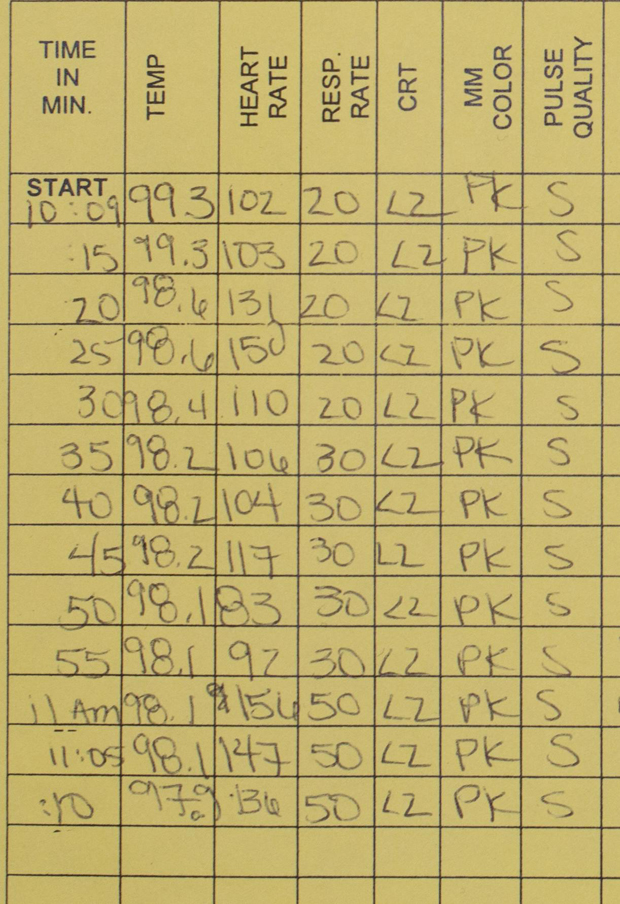 TIME IN MIN. TEMP HEART RATE RESP. RATE CRT MM COLOR PULSE QUALITY
START 10:09 99.3 102 20 <2 PK S
:15 99.3 103 20 <2 PK S
20 98.6 131 20 <2 PK S
25 98.6 150 20 <2 PK S
30 98.4 110 20 <2 PK S
35 98.2 106 30 <2 PK S
40 98.2 104 30 <2 PK S
45 98.2 117 30 <2 PK S
50 98.1 83 30 <2 PK S
55 98.1 92 30 <2 PK S
11 Am 98.1 156 50 <2 PK S
11:05 98.1 147 50 <2 PK S
:10 97.9 136 50 <2 PK S